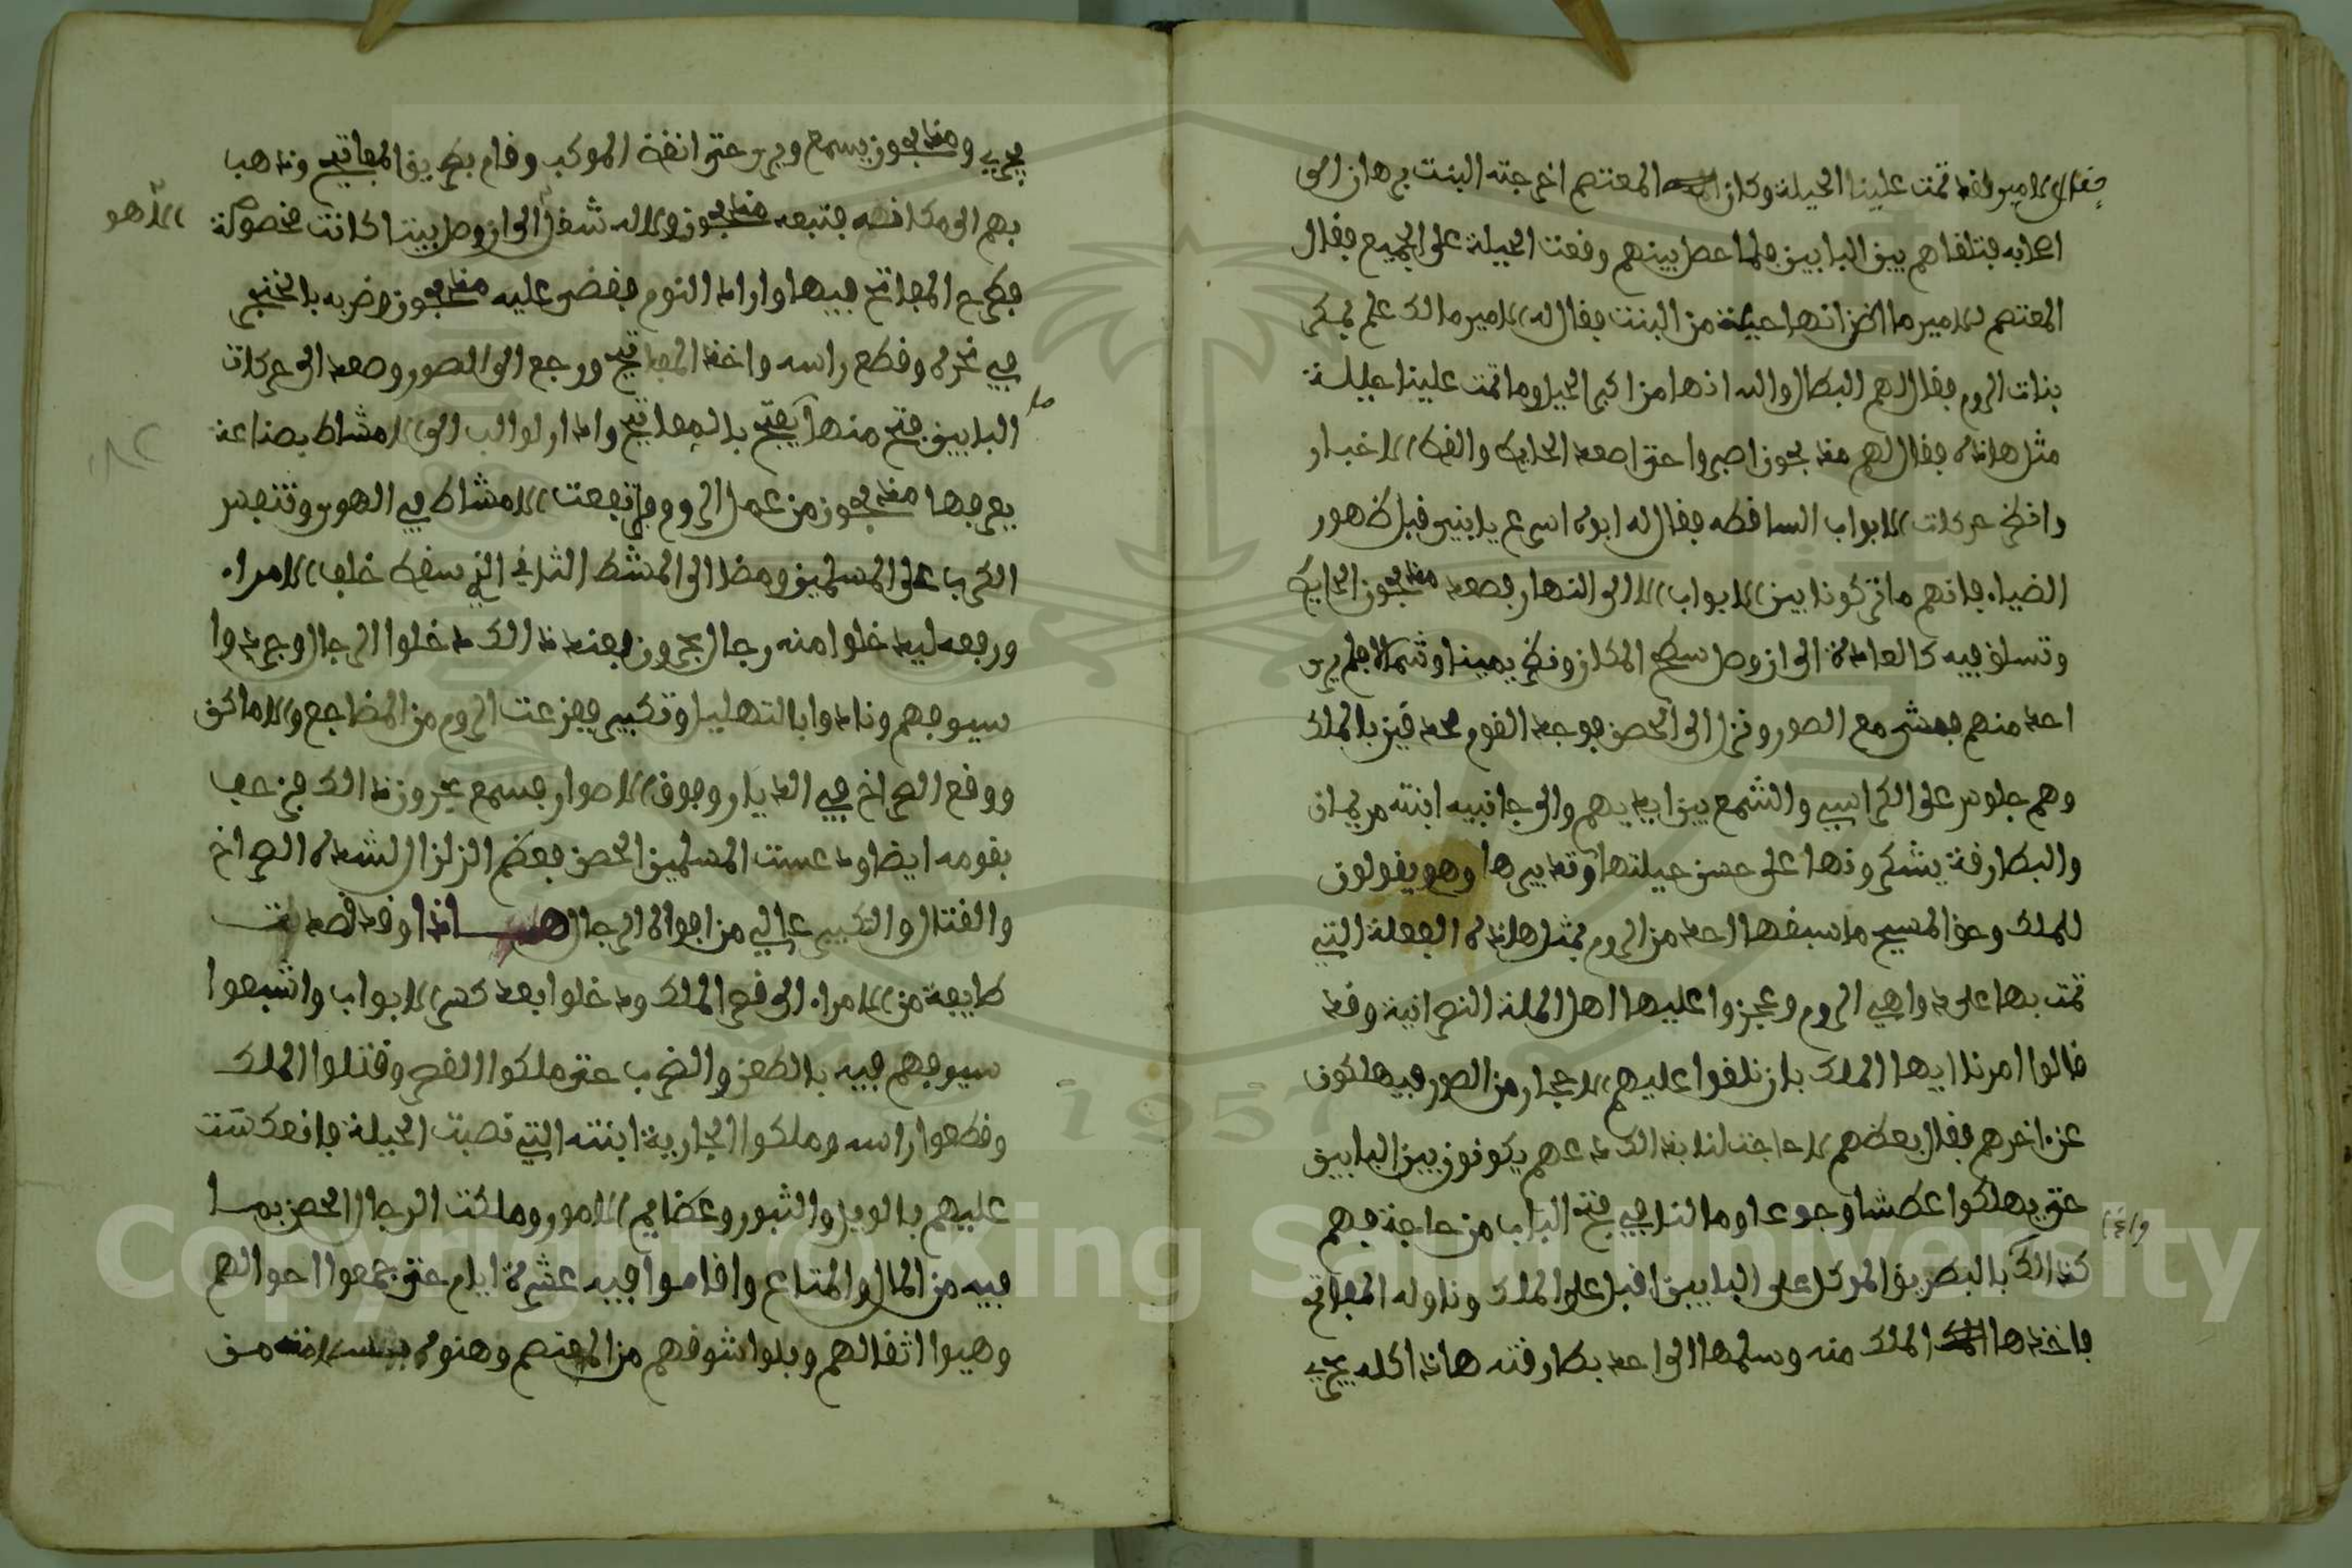 فقال الامير لقد تمت علينا الحيلة وكان المعتصم اخرجته البنت برهان امن
اصحابه فتلقاهم بين البابين فلما حصل بينهم وقعت الحيلة على الجميع فقال
المعتصم للامير ما اظن انها حيلة من البنت فقال له الامير مالك علم بمكر
بنات الروم فقال لهم البطال والله انها من اكبر الحيل وما تمت علينا حيلة
مثل هاذه فقال لهم مذبحون اصبروا حتى اصعد الحايط وانظر الاخبار
وانظر حركات الابواب الساقطه فقال له ابوه اسرع يا بني قبل ظهور
الضياء فانهم ما تركونا بين الابواب الا الى النهار فصعد مذبحون الحايط
وتسلق فيه كالعادة الى ان وصل سطح المكان ونظر يمينا وشمالا فلم ير
احد منهم فمشى مع الصور ونزل الى الحصن فوجد القوم محدقين بالملك
وهم جلوس على الكراسي والشمع بين ايديهم والى جانبه ابنته مريمان
والبطارقة يشكرونها على حسن حيلتها وتدبيرها وهو يقولون
للملك وحق المسيح ما سبقها احد من الروم بمثل هاذه الفعلة التي
تمت بها على دواهي الروم وعجزوا عليها اهل الملة النصرانية وقد
قالوا امرنا ايها الملك بان نلقوا عليهم الاحجار من الصور فيهلكون
عن اخرهم فقال بعضهم لا حاجت لنا بذالك دعهم يكونون بين البابين
حتى يهلكوا عطشا وجوعا وما لنا في فتح الباب من حاجة فهم
كذالك بالبطريق الموكل على البابين اقبل على الملك وناوله المفاتح
فاخذها الملك منه وسلمها الى احد بطارقته هاذا كله يجري
يجري ومذبحون يسمع ويرى حتى انفض الموكب وقام بطريق المفاتيح وذهب
بهم الى مكان قصره فتبعه مذبحون ولا له شغل الا هو الى ان وصل بيتا كانت مخصوصة
فطرح المفاتح فيها واراد النوم فقضى عليه مذبحون وضربه بالخنجر
في نحره وقطع راسه واخذ المفاتيح ورجع الى الصور وصعد الى حركات
البابين ففتح منها ما يفتح بالمفاتيح وادار لوالب الى الامشاط بصناعة
يعرفها مذبحون من عمل الروم فارتفعت الامشاط في الهوى وتنفس
الكرب على المسلمين ومضا الى المشط الثاني الذي سقط خلف الامراء
ورفعه ليدخلوا منه رجال بحرون فعند ذالك دخلوا الرجال وجردوا
سيوفهم ونادوا بالتهليل وتكبير ففزعت الروم من المضاجع والاماكن
ووقع الصراخ في الديار وفوق الاصوار فسمع بحرون ذالك فزحف
بقومه ايضا ودعست المسلمين الحصن فعظم الزلزال لشدة الصراخ
والقتال والتكبير عالي من افواه الرجال هاذا وقد قصدت
طايفة من الامراء الى قصر الملك ودخلوا بعد كسر الابواب واشبعوا
سيوفهم فيه بالطعن والضرب حتى ملكوا القصر وقتلوا الملك
وقطعوا راسه وملكوا الجارية ابنته التي نصبت الحيلة فانعكست
عليهم بالويل والثبور وعظايم الامور وملكت الرجال الحصن بما
فيه من المال والمتاع واقاموا فيه عشرة ايام حتى جمعوا احوالهم
وهيوا اثقالهم وبلوا شوقهم من المعتصم وهنوه بسلامته من